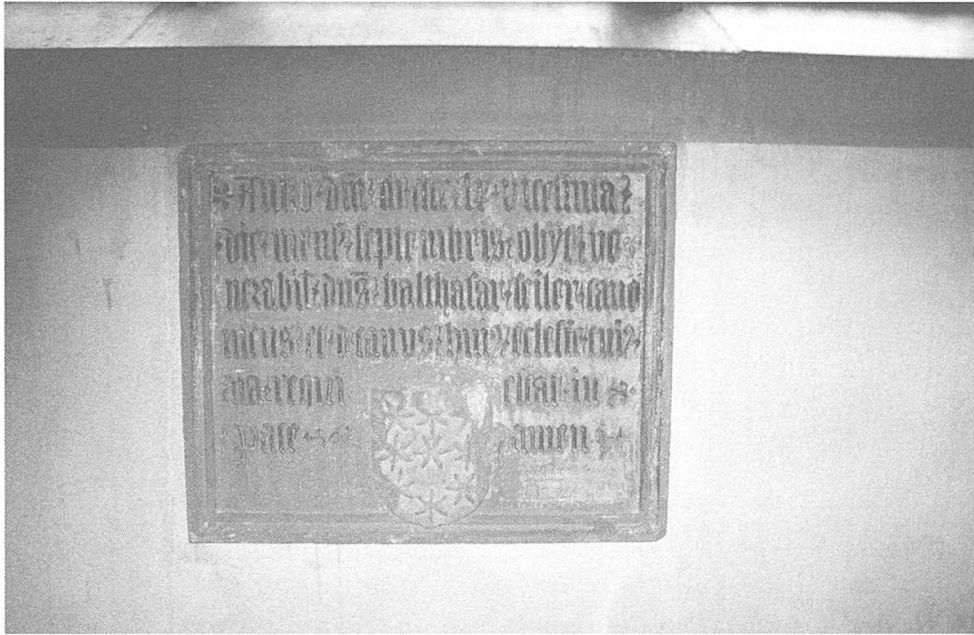 Anno · dni · vicesima
die · mens · septembris · obyt · ve
nerabil · dns · balthasar · seiler · cano
nicus · decanus · hui9 · ecclesie · cui9
aia · requi escat · in
pace amen